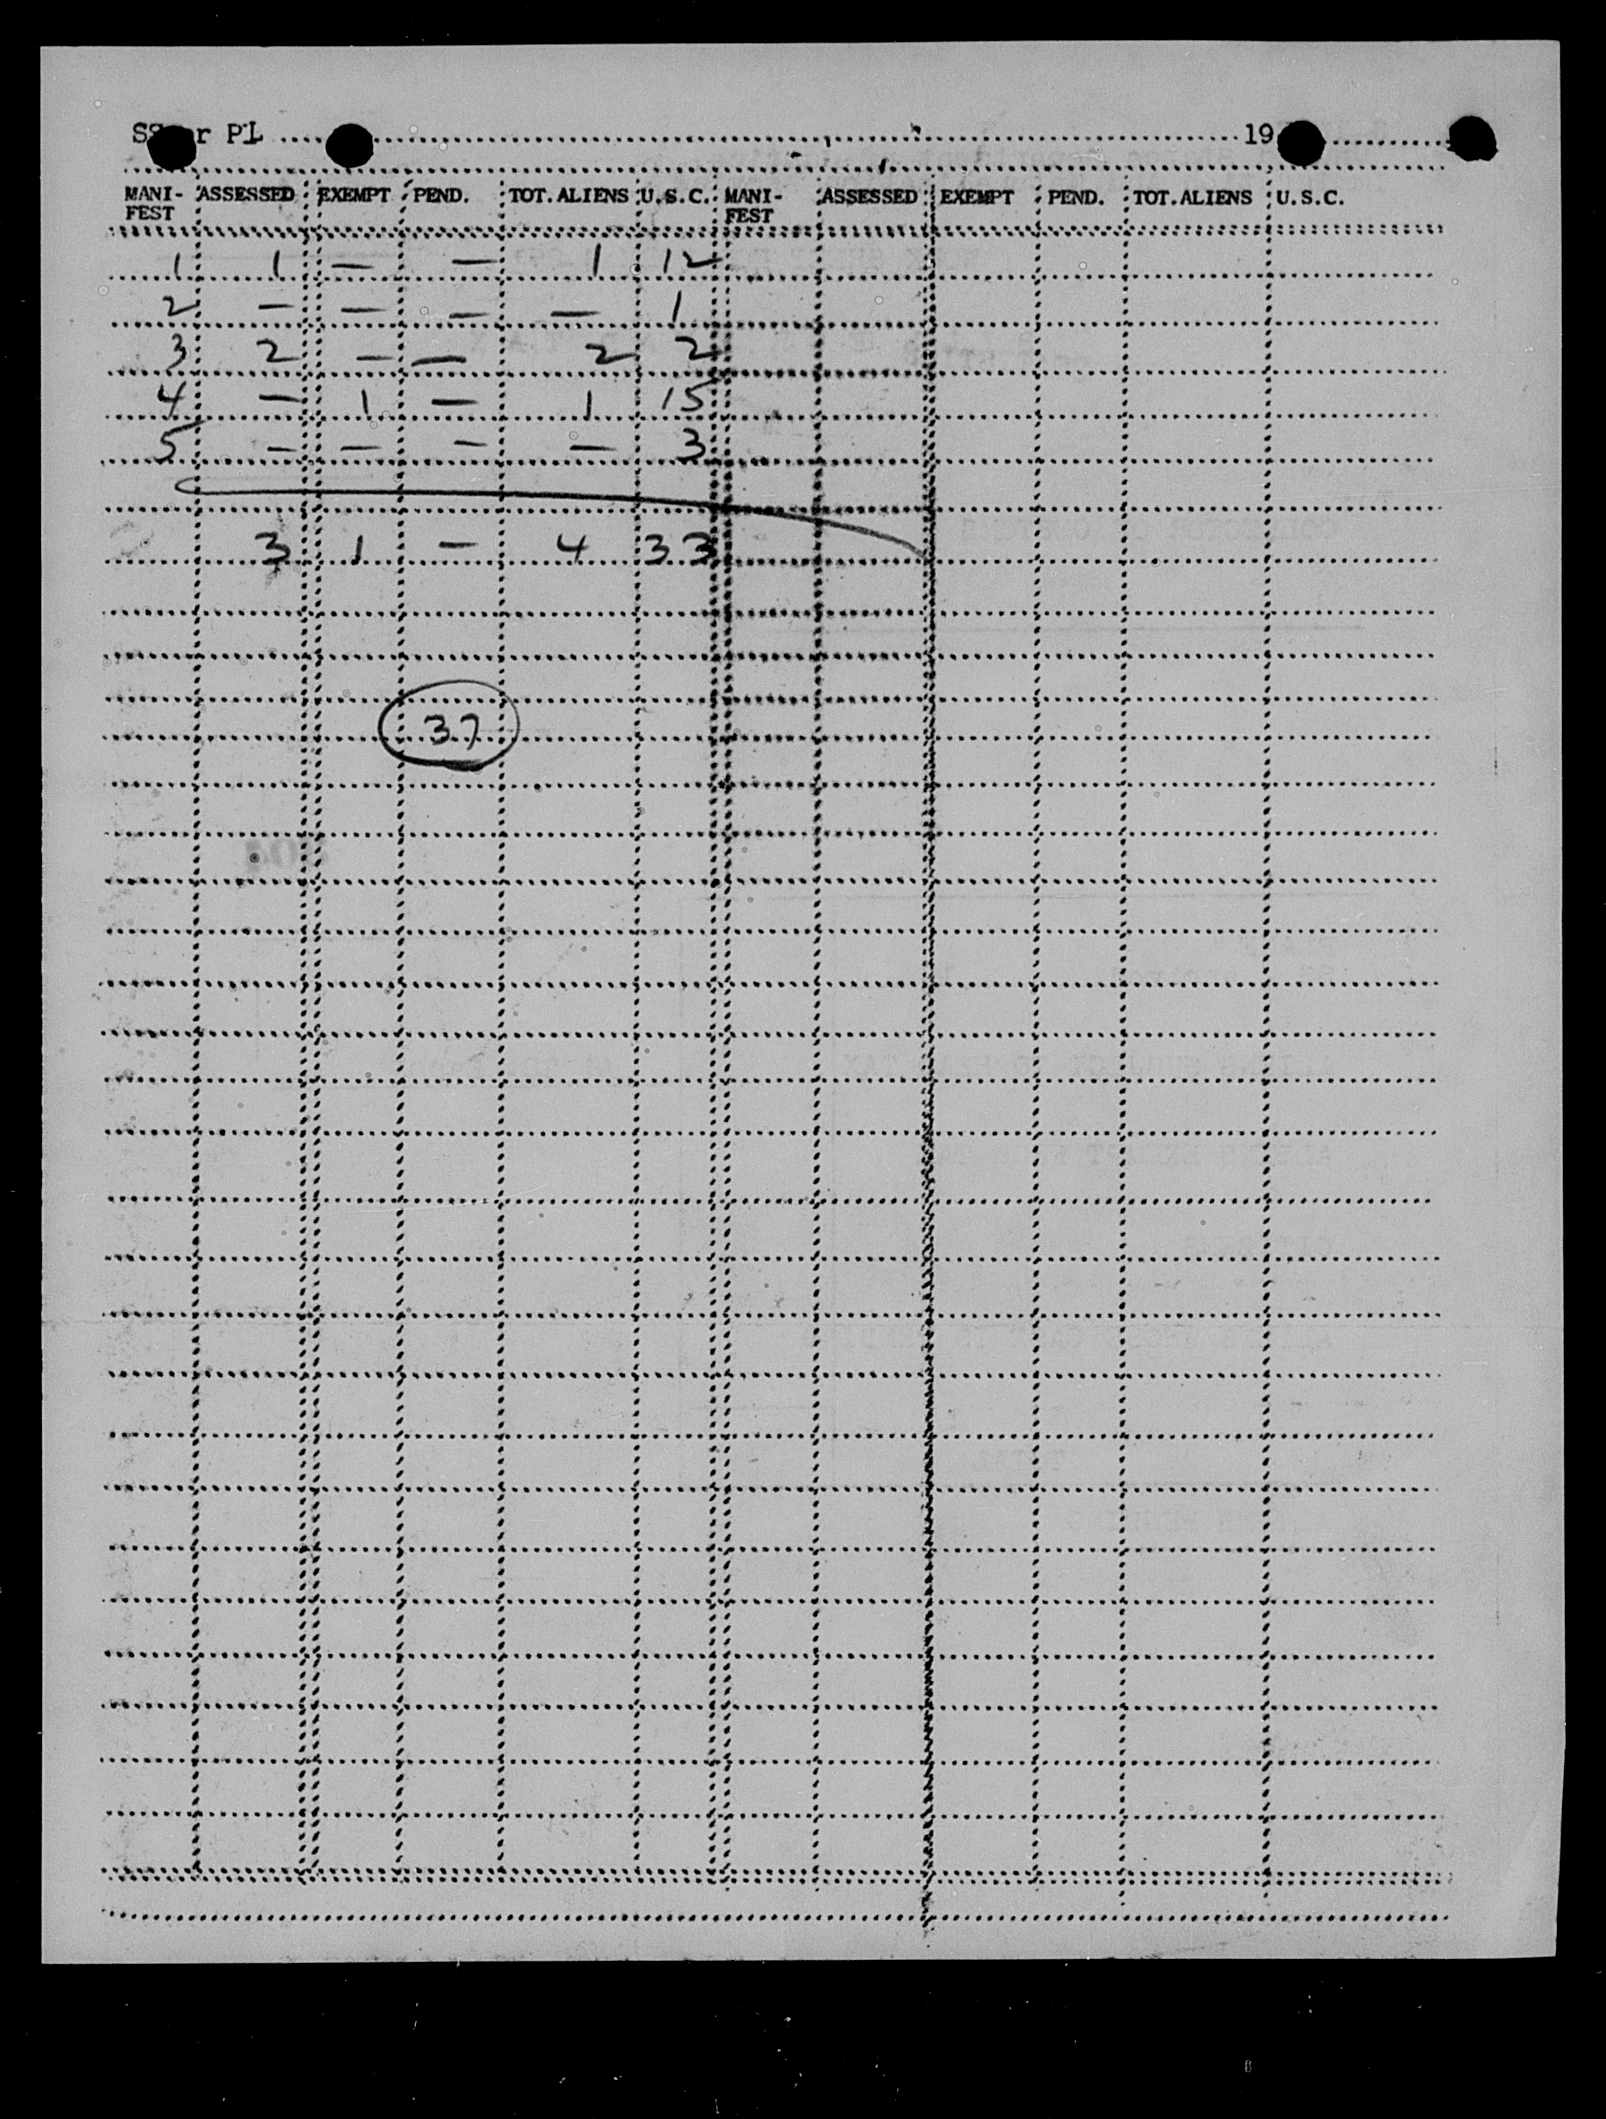 SS or PL 19
MANI- ASSESSED EXEMPT PEND. TOT. ALIENS U.S.C. MANI- ASSESSED EXEMPT PEND. TOT. ALIENS U.S.C.
FEST FEST
1 1 — — 1 12
2 — — — — 1
3 2 — — 2 2
4 — 1 — 1 15
5 — — — — 3
3 1 — 4 33
37